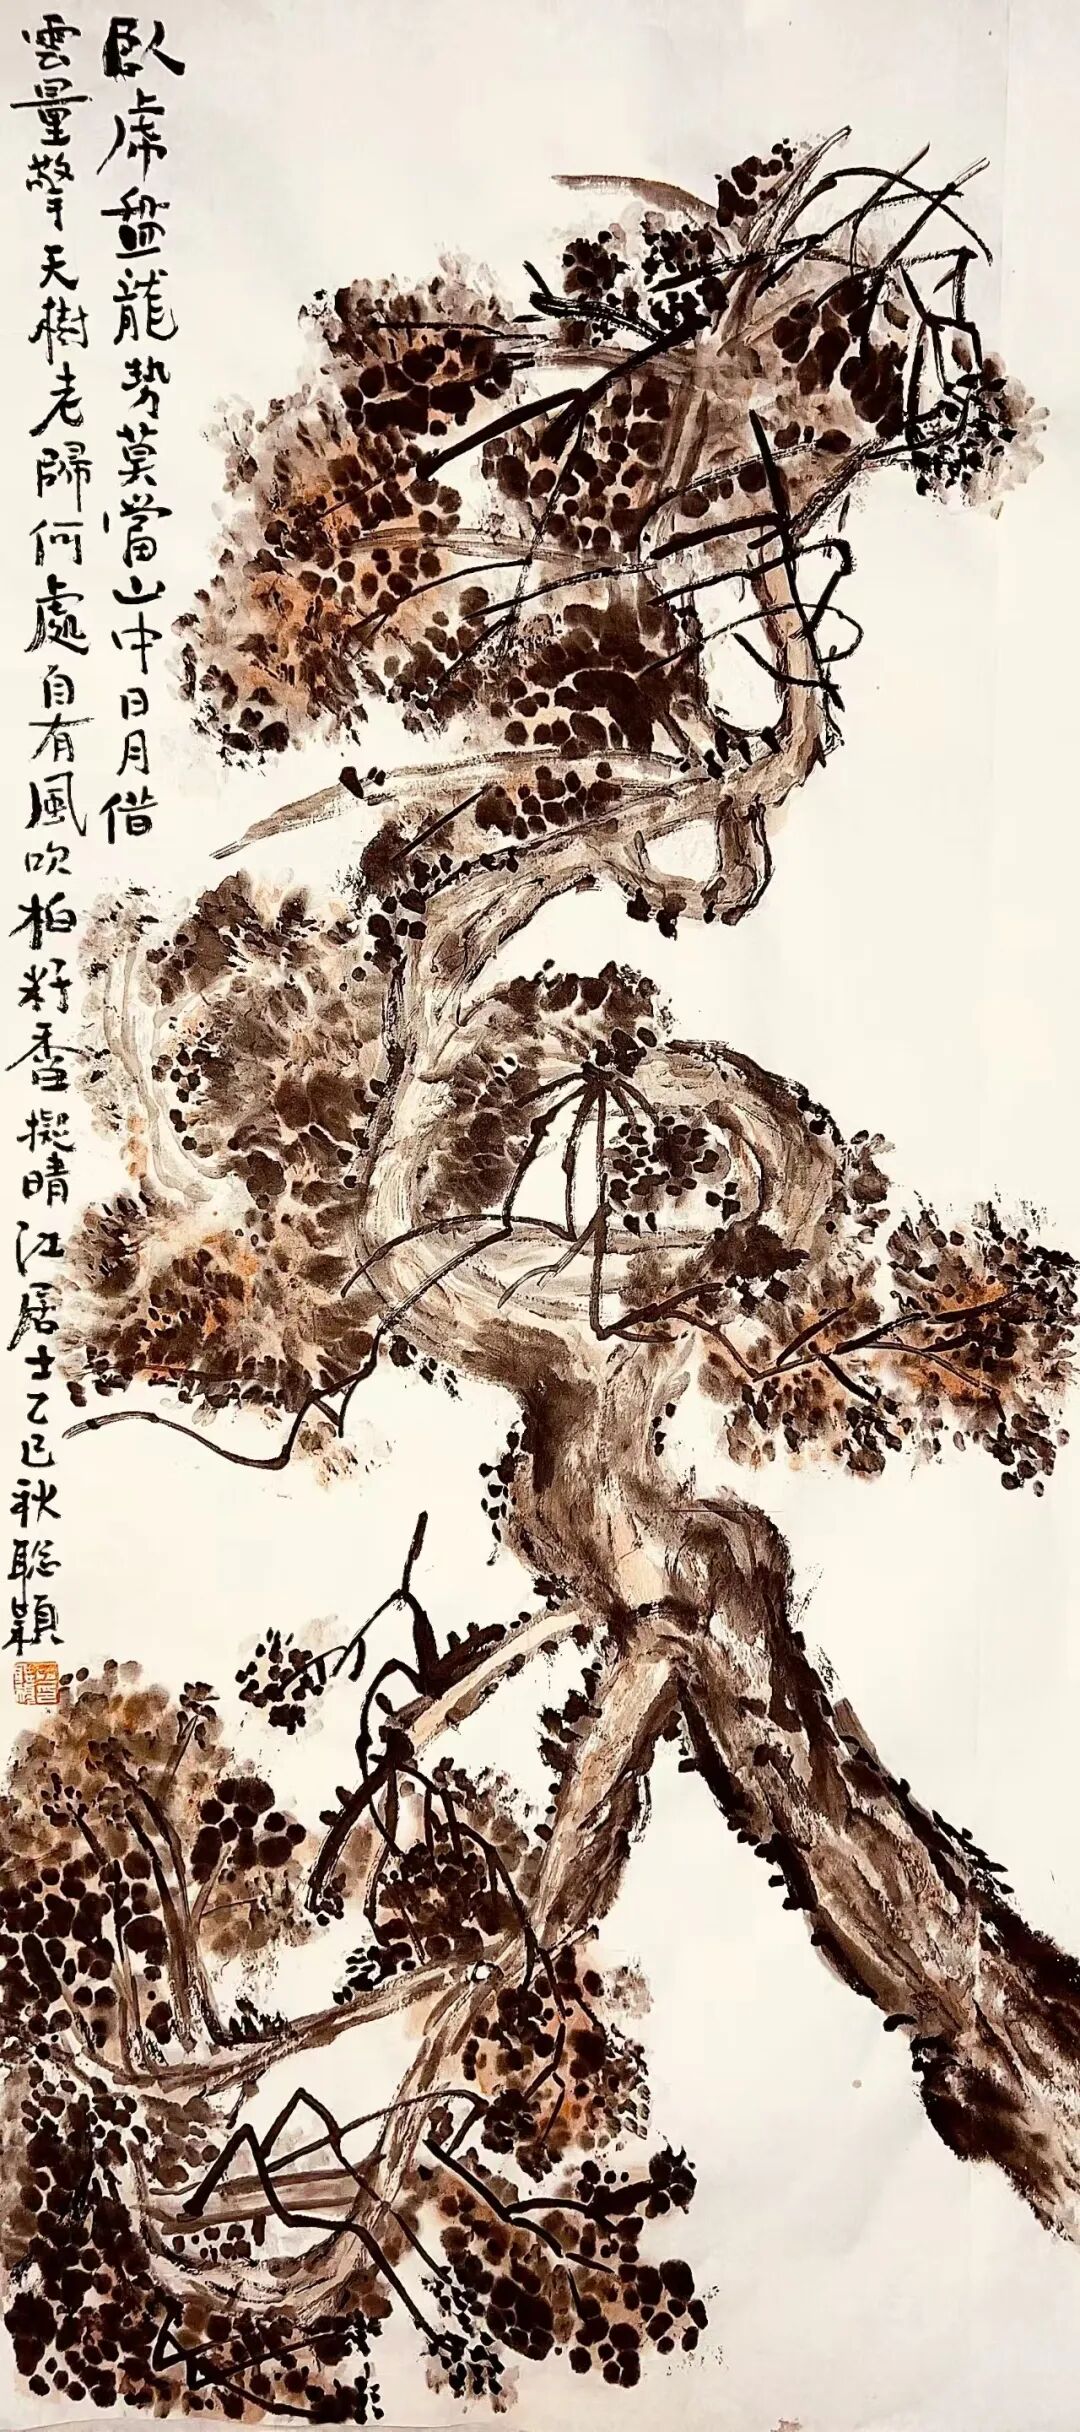 臥虎盤龍勢莫當山中日月借
雲量擎天樹老歸何處自有風吹柏籽香擬晴江居士乙巳秋聡穎